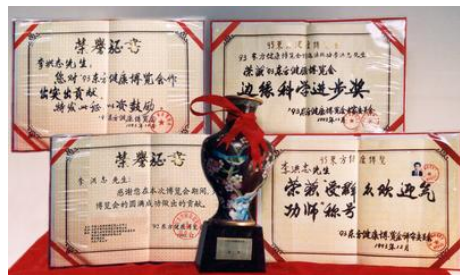 荣誉证书
李洪志先生:
您对'93东方健康博览会作
出突出贡献,
特发此证 以资鼓励。
'93东方健康博览会
'93东方健康博览会
荣获'93东方健康博览会
边缘科学进步奖
'93东方健康博览会
1993年12月
荣誉证书
李洪志先生:
感谢您在本次博览会期间,
博览会的圆满成功做出的贡献。
'93东方健康博览会
93东方健康博览
李洪志先生
荣获受群众欢迎气
功师称号
'93东方健康博览会评审委员会
1993年12月